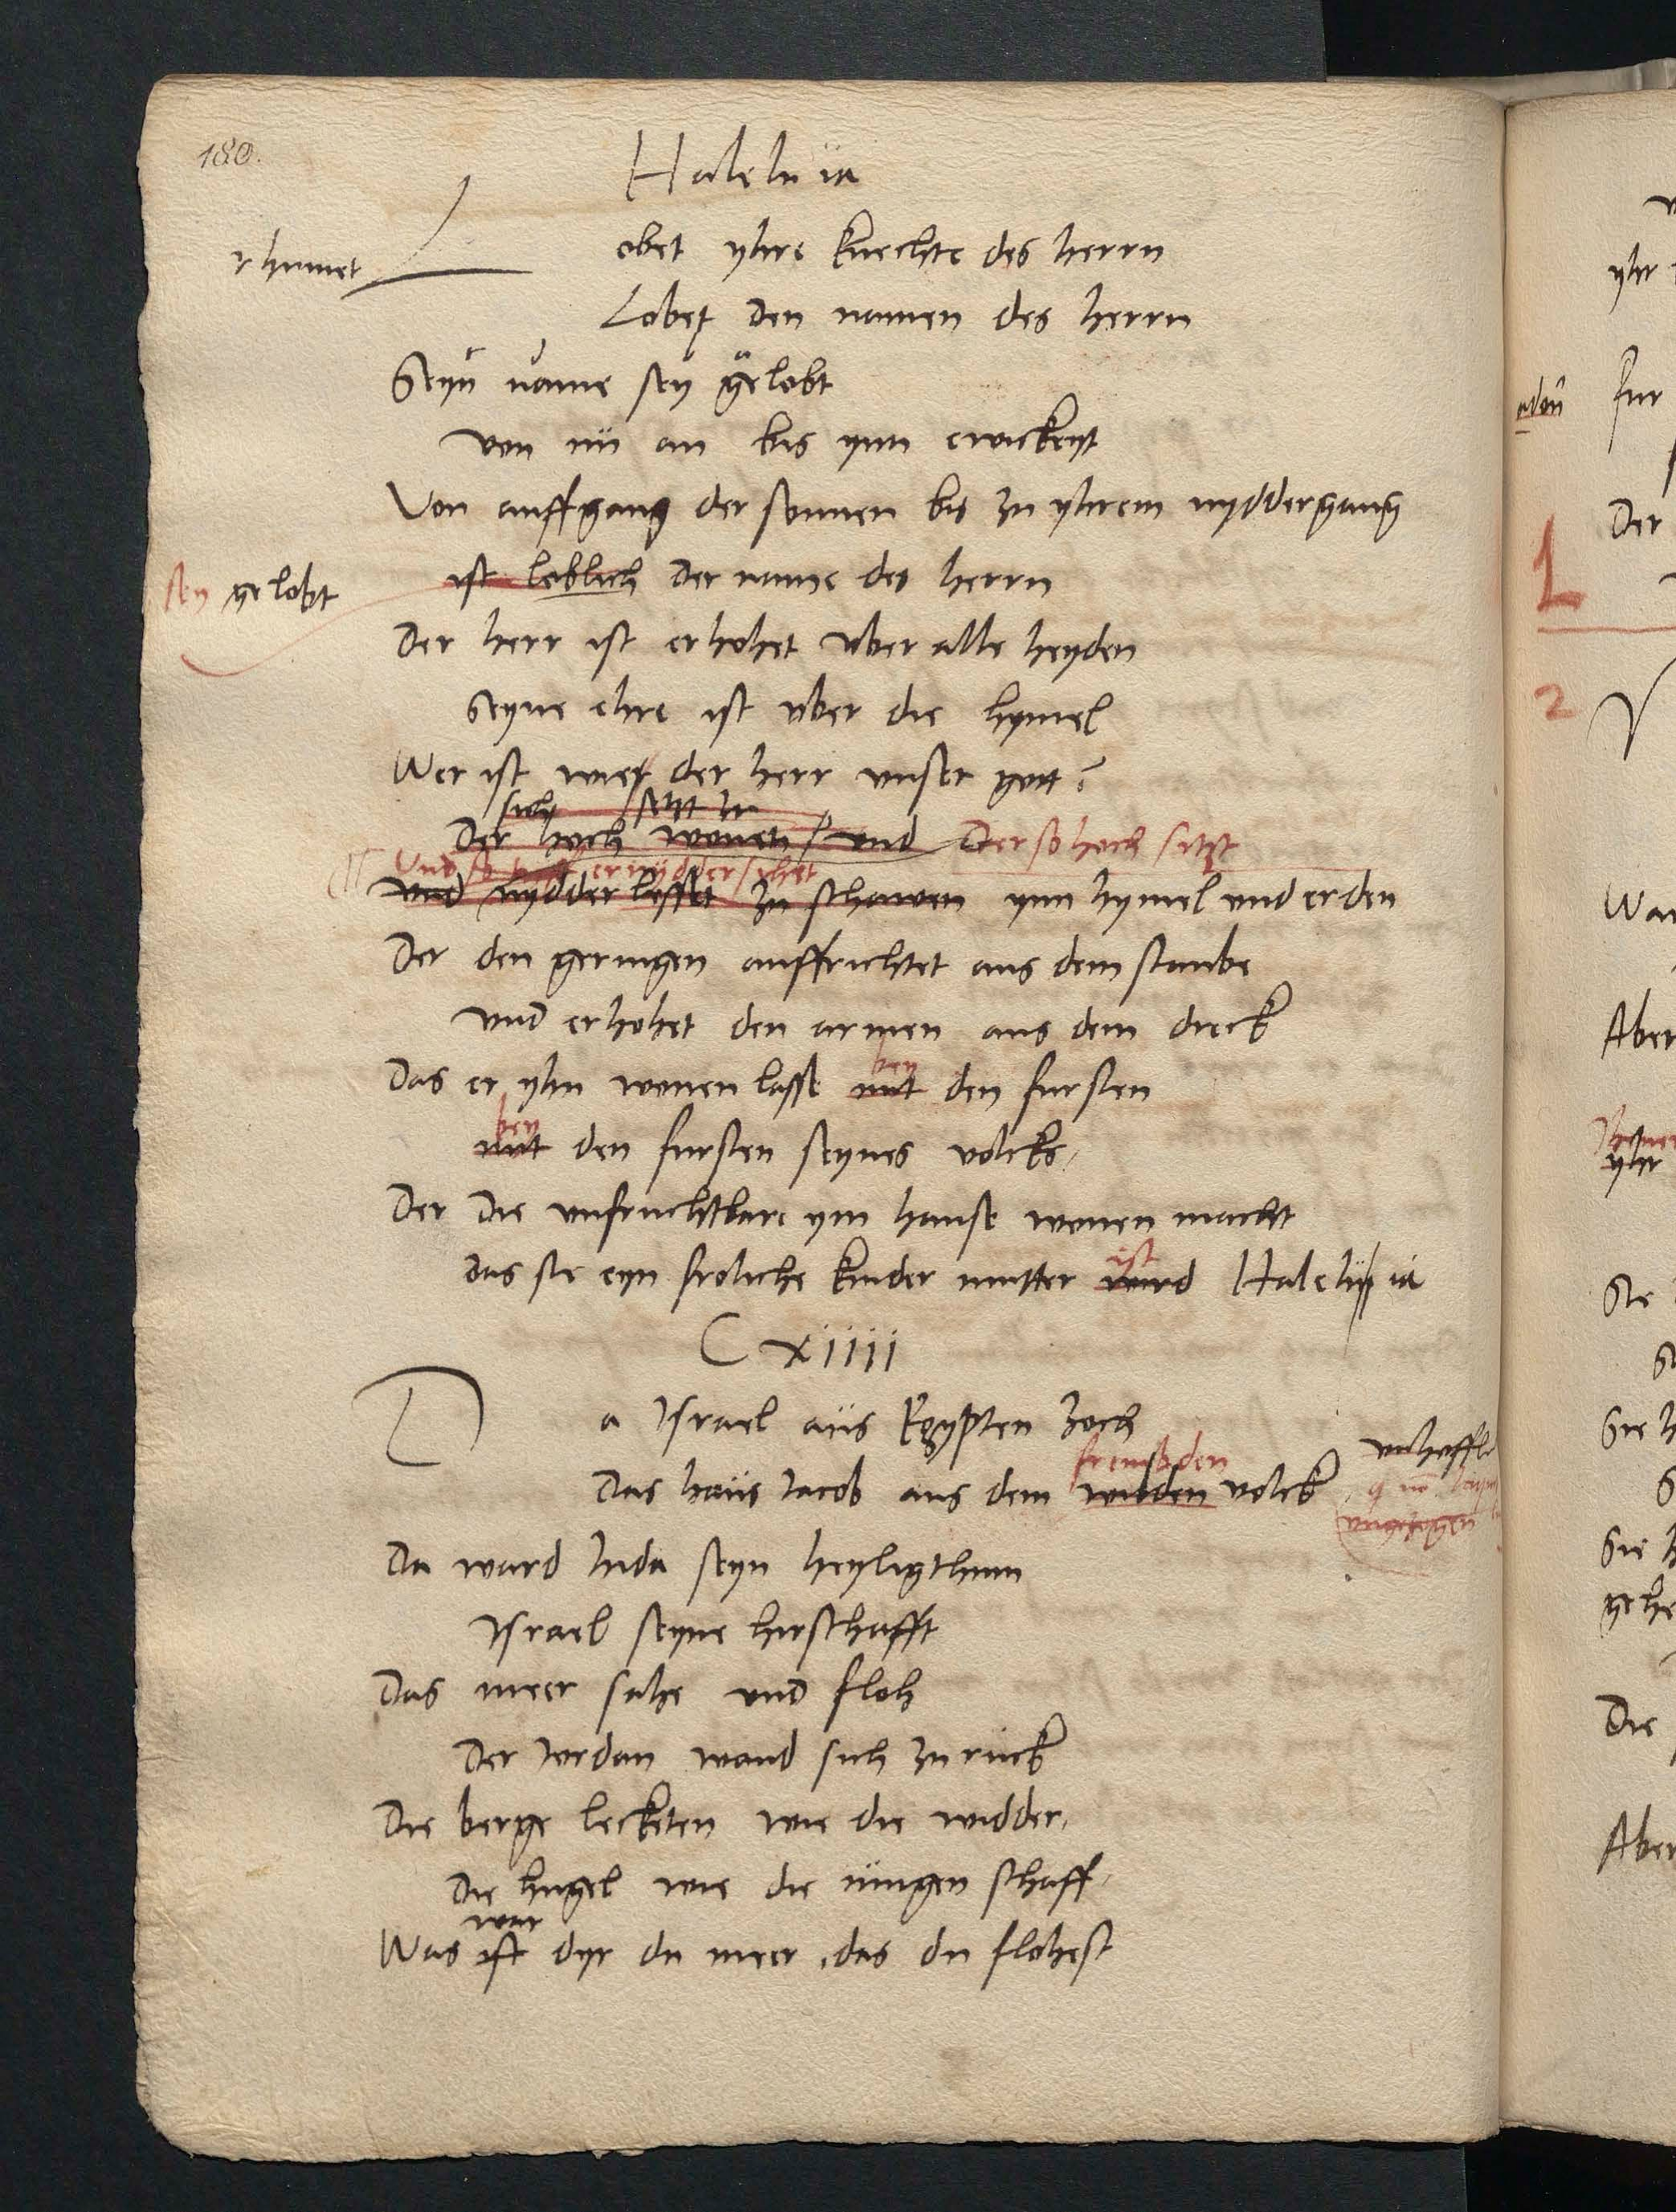 180.
Halelu ia
rhumet
Lobet yhre knechte des herrn
Lobet den namen des herrn
Seyn name sey gelobt
von nu an bis ynn ewickeyt
Von auffgang der sonnen bis zu yhrem nyddergang
sey gelobt
ist loblich der name des herrn
Der herr ist erhohet vber alle heyden
Seyne ehre ist vber die hymel
Wer ist wie der herr vnser gott?
sich setzt
Der hoch wonet / vnd Der so hoch sitzt
Vnd so er nyddersihet
vnd nydder lesset zu schawen ynn hymel vnd erden
Der den geringen auffrichtet aus dem staube
vnd erhohet den armen aus dem dreck
bey
Das er yhn wonen lasse mit den fursten
bey
mit den fursten seynes volcks
Der die vnfruchtbare ym hause wonen macht
ist
das sie eyn froliche kinder mutter wird Halelu ia
C xiiii
Da Israel aus Egypten zoch
frembden
Das haus Jacob aus dem wilden volck
Da ward Juda seyn heyligthum
Israel seyne hirschafft
Das meer sahe vnd floh
Der Jordan wand sich zu ruck
Die berge lecketen wie die widder
Die hugel wie die iungen schaff
war
Was ist dyr du meer das du flohest
adon
yhr
fur
Der
1
2
Aber
yhr
Sie
Sie
Die
Aber